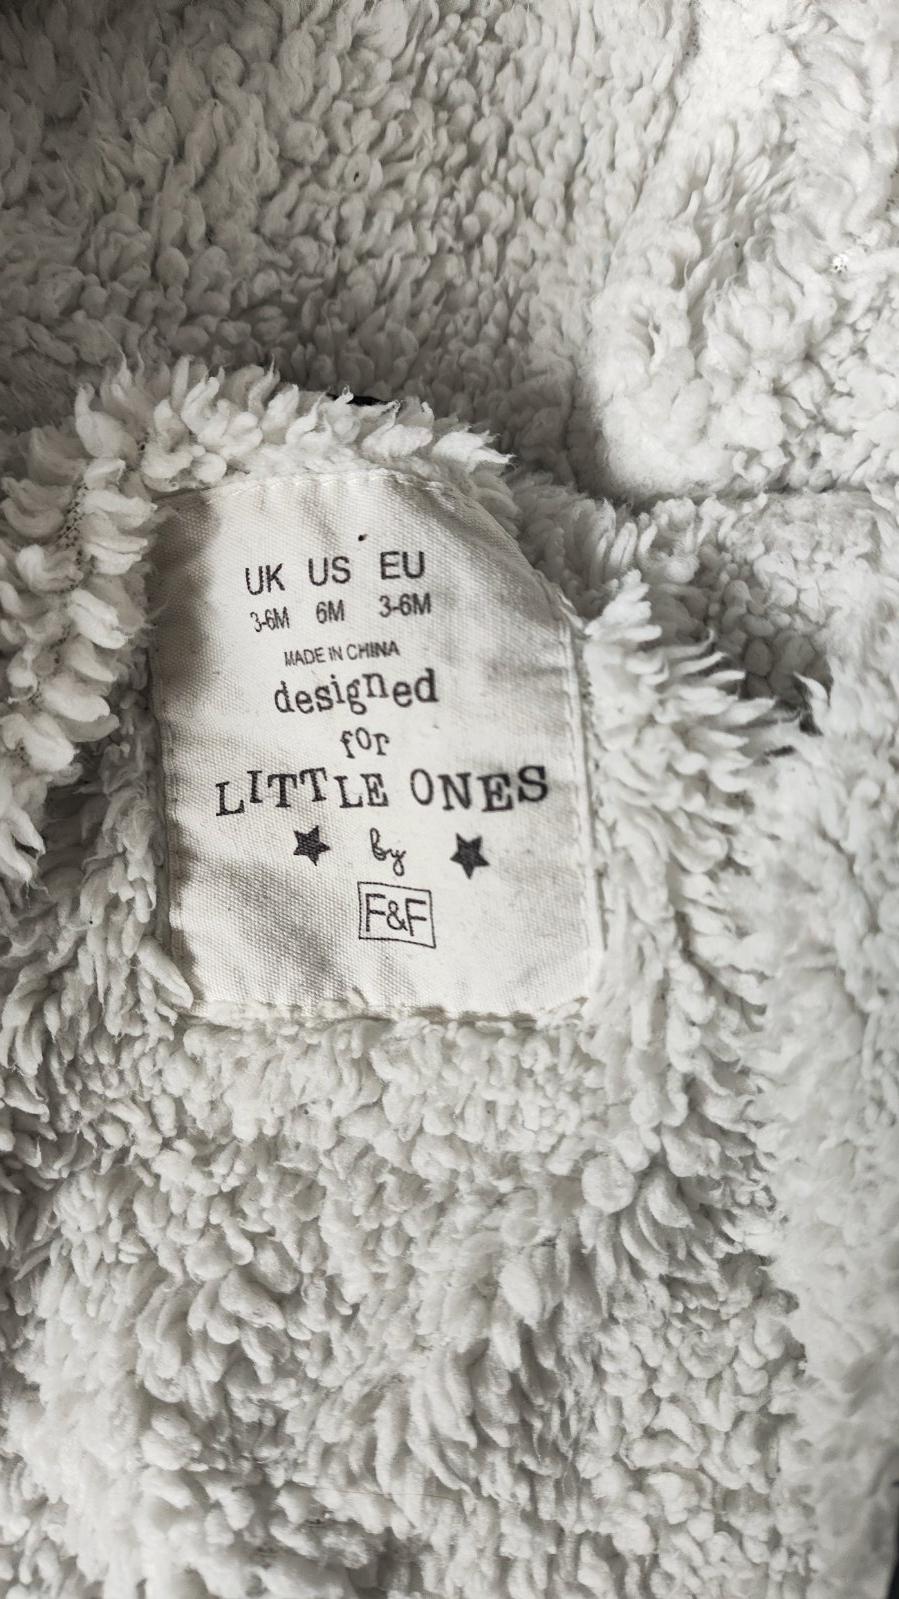 UK US EU
3-6M 6M 3-6M
MADE IN CHINA
designed
for
LITTLE ONES
by
F&F